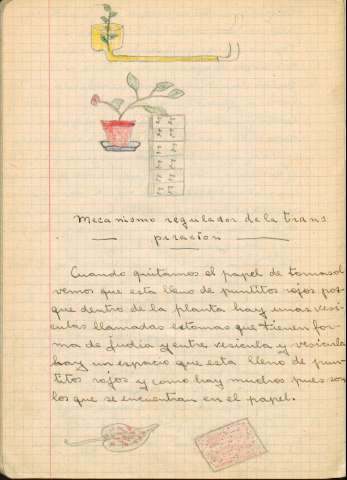 Mecanismo regulador de la trans
piración
Cuando quitamos el papel de tornasol
vemos que esta lleno de puntitos rojos por
que dentro de la planta hay unas vesi
culas llamadas estomas que tienen for
ma de judia y entre vesicula y vesicula
hay un espacio que esta lleno de pun
titos rojos y como hay muchos pues son
los que se encuentran en el papel.